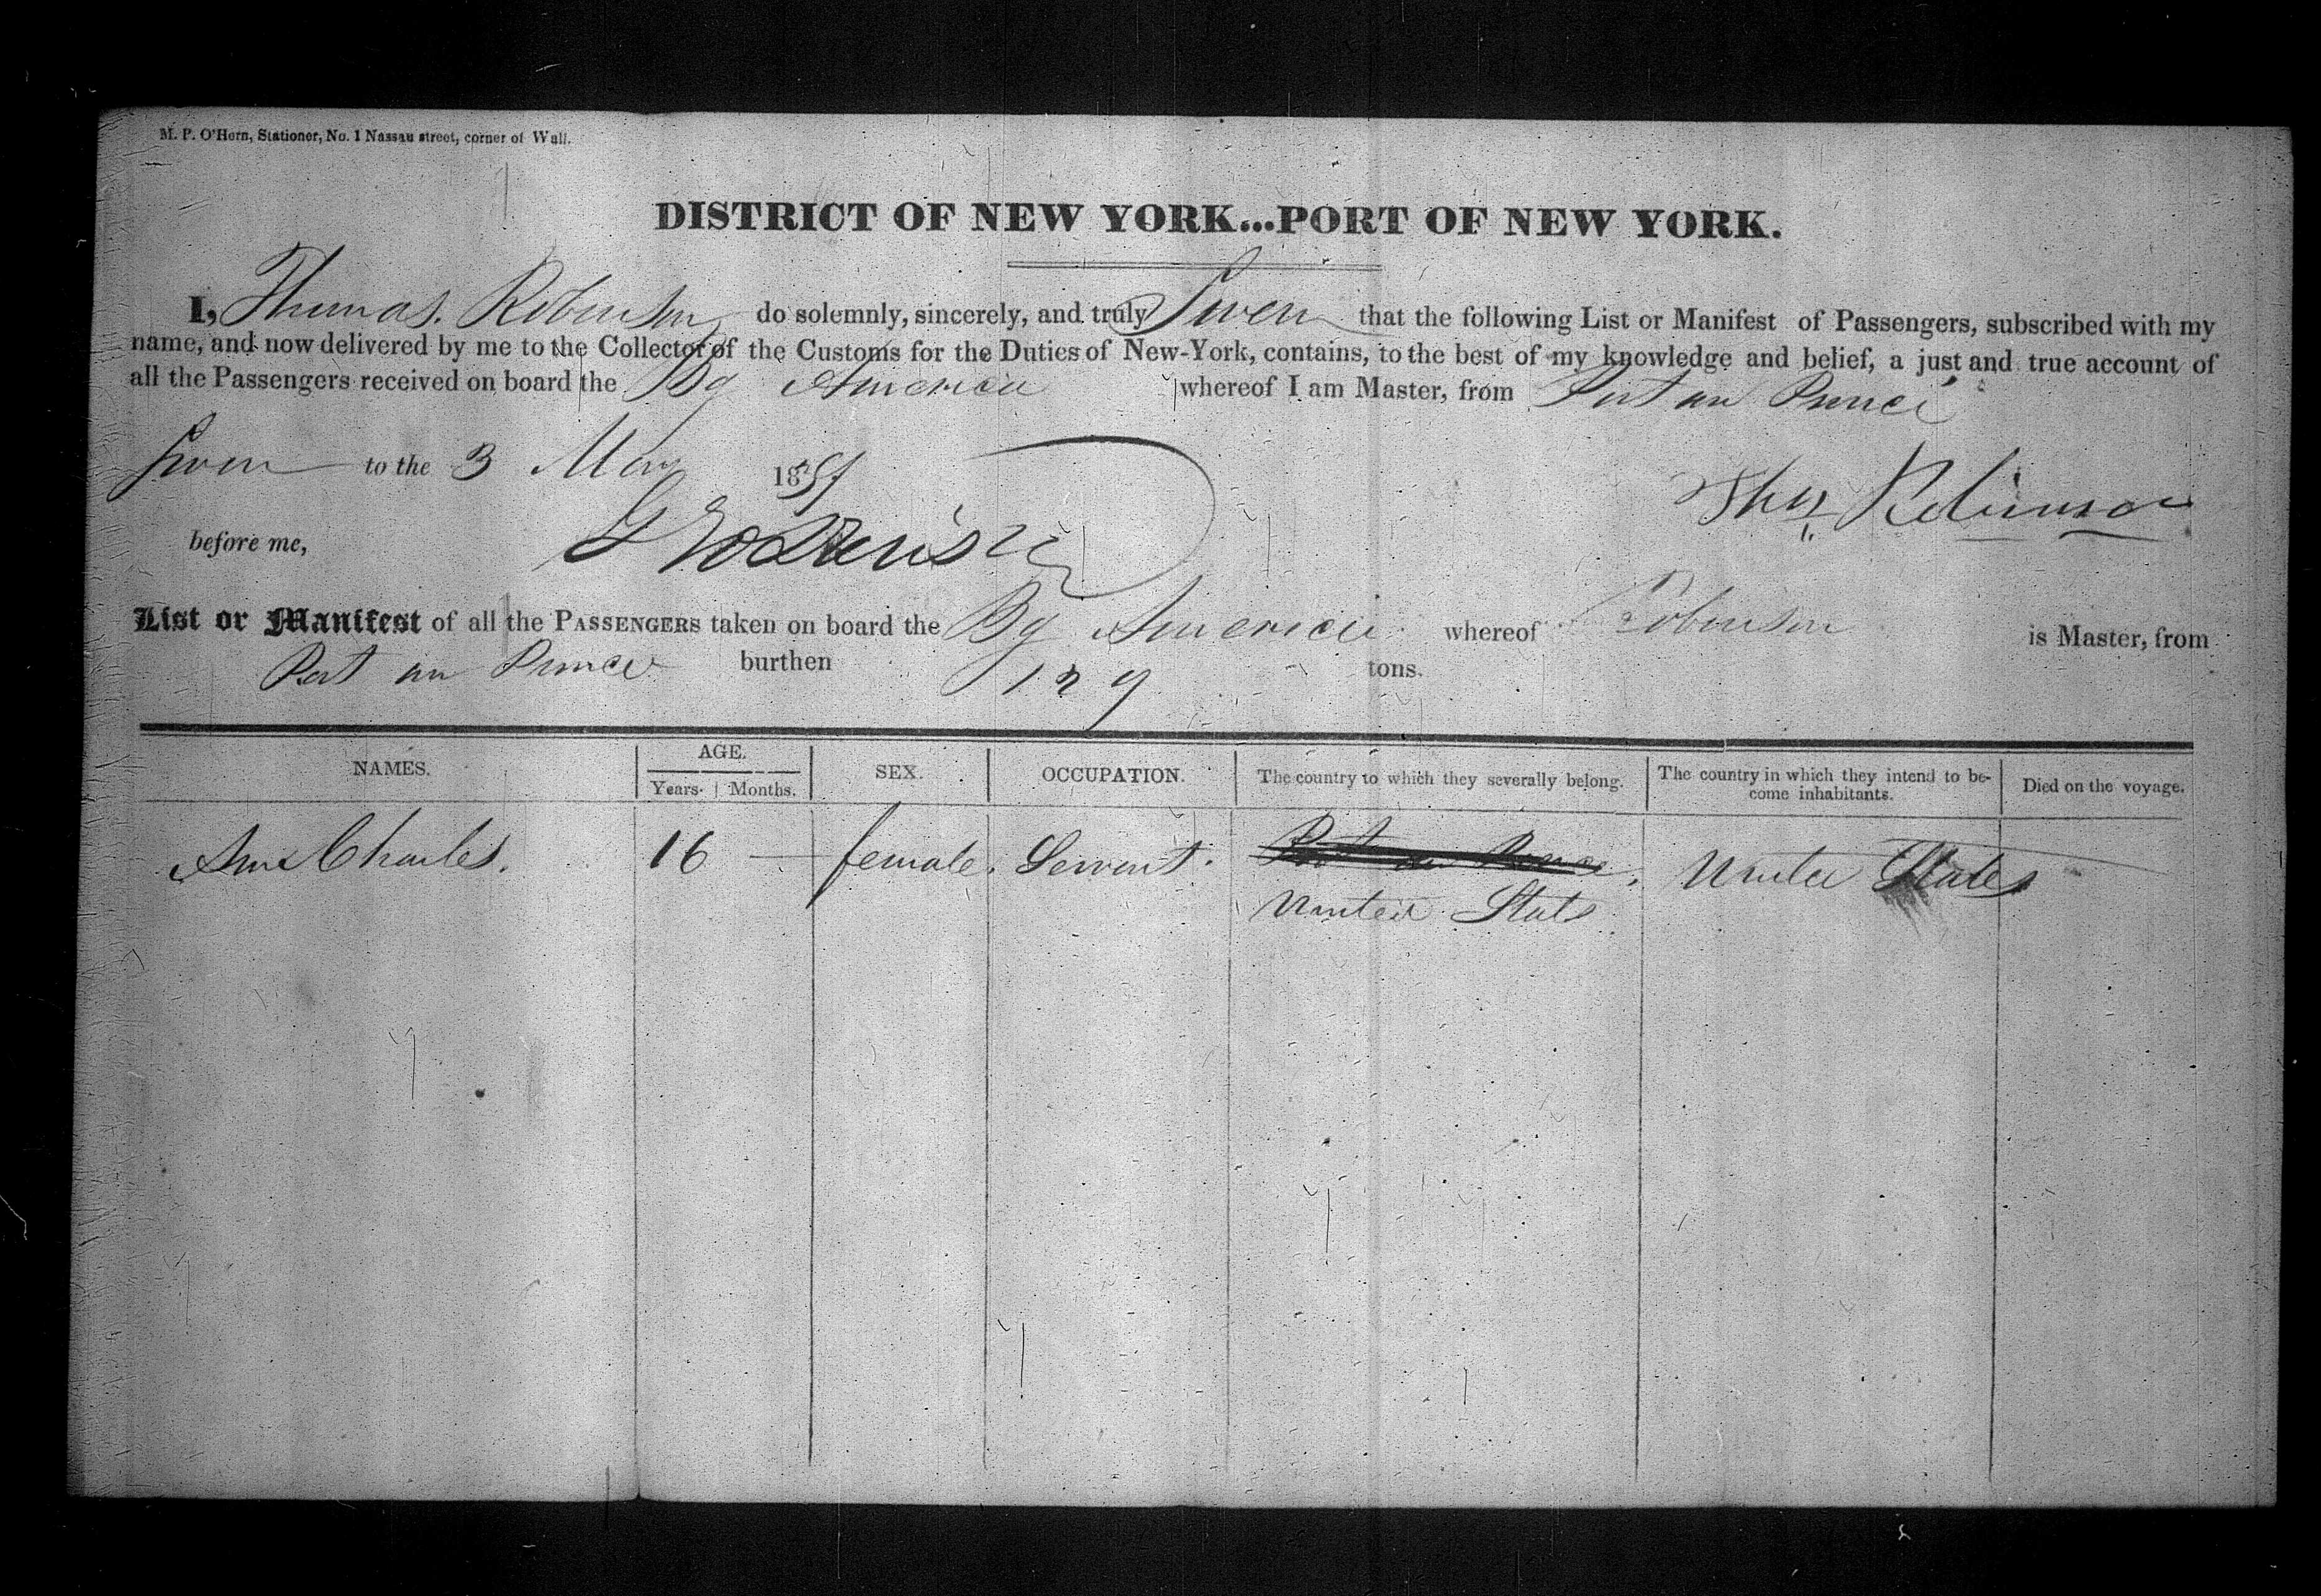 M. P. O'Hern, Stationer, No. 1 Nassau street, corner of Wall.
DISTRICT OF NEW YORK...PORT OF NEW YORK.
I, Thomas. Robinson do solemnly, sincerely, and truly Swear that the following List or Manifest of Passengers, subscribed with my
name, and now delivered by me to the Collector of the Customs for the Duties of New-York, contains, to the best of my knowledge and belief, a just and true account of
all the Passengers received on board the Bg America whereof I am Master, from Port au Prince
Sworn to the 3 May 18
Thos Robinson
before me,
List or Manifest of all the PASSENGERS taken on board the Bg America whereof Robinson is Master, from
Port au Prince burthen 129 tons.
NAMES. AGE. Years. Months. SEX. OCCUPATION. The country to which they severally belong. The country in which they intend to be-come inhabitants. Died on the voyage.
Ann Charles. 16 — female. Servant. Port au Prince. United States
United States